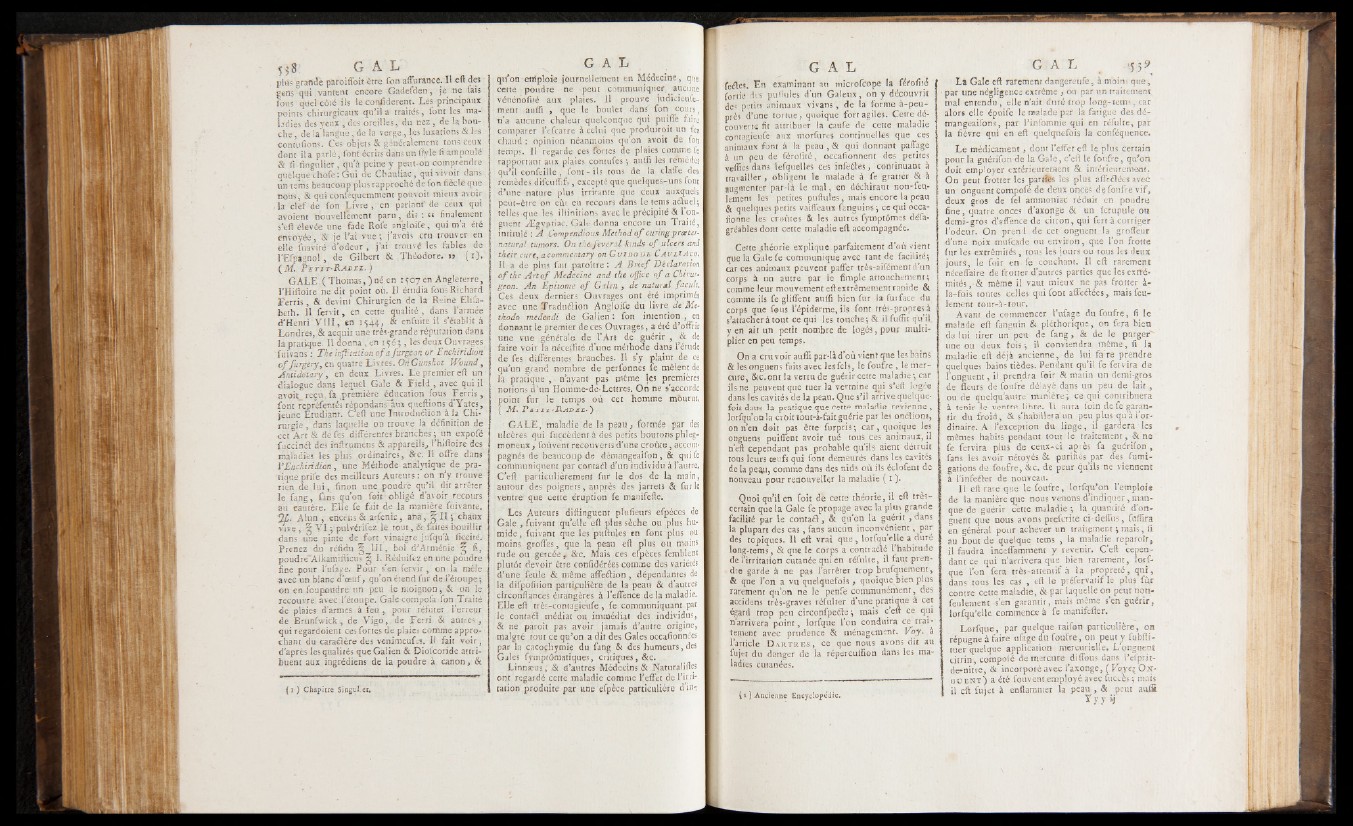 538 G A L
plus grande paroissoit être son assurance. Il est des
gens qui vantent encore Gadesden, je ne sais
sous quel côté ils le considerent. Les principaux
points chirurgicaux qu'il a traités, sont les ma-
ladies des yeux, des oreilles, du nez, de la bou-
che, de la langue, de la verge, les luxations & les
contusions. Ces objets & généralement tous ceux
dont il a parlé, sont écrits dans un style si ampoulé
& si singulier, qu'à peine y peut-on comprendre
quelque chose: Gui de Chauliac, qui vivoit dans
un tems beaucoup plus rapproché de son siècle que
nous, & qui conséquemment pouvoit mieux avoir
la clef de son Livre, en parlant de ceux qui
avoient nouvellement paru, dit : « finalement
s'est élevée une fade Rose angloise, qui m'a été
envoyée, & je l'ai vue ; j'avois cru trouver en
elle suavité d'odeur, j'ai trouvé les fables de
l'Espagnol, de Gilbert & Théodore. » (1).
(M. PETIT-RADEL.)
GALE (Thomas,) né en 1507 en Angleterre,
l'Histoire ne dit point où. Il étudia sous Richard
Ferris, & devint Chirurgien de la Reine Elisa-
beth. Il servit, en cette qualité, dans l'armée
d'Henri VIII, en 1544, & ensuite il s'établit à
Londres, & acquit une très-grande réputation dans
la pratique. Il donna, en 1563, les deux Ouvrages
suivans : The institution of a surgeon or Enchiridion
of surgery, en quatre Livres. On Gunshot Wound,
Antidotary, en deux Livres. Le premier est un
dialogue dans lequel Gale & Field, avec qui il
avoit reçu sa première éducation sous Ferris,
sont représentés répondans aux questions d'Yates,
jeune Etudiant. C'est une Introduction à la Chi-
rurgie, dans laquelle on trouve la définition de
cet Art & de ses différentes branches ; un exposé
succinct des instrumens & appareils, l'histoire des
maladies les plus ordinaires, &c. Il offre dans
l'Enchiridion, une Méthode analysique de pra-
tique prise des meilleurs Auteurs : on n'y trouve
rien de lui, sinon une poudre qu'il dit arrêter
le sang, sans qu'on soit obligé d'avoir recours
au cautère. Elle se fait de la manière suivante.
℞. Alun, encens & arsenic, ana, ℥ II ; chaux
vive, ℥ VI ; pulvérisez le tout, & faites bouillir
dans une pinte de fort vinaigre jusqu'à siccité.
Prenez du résidu ℥ III, bol d'Arménie ℥ ß,
poudre Alkamisticus ℥ I. Réduisez en une poudre
fine pour l'usage. Pour s'en servir, on la mêle
avec un blanc d'œuf, qu'on étend sur de l'étoupe ;
on en saupoudre un peu le moignon, & on le
recouvre avec l'étoupe. Gale composa son Traité
de plaies d'armes à feu, pour réfuter l'erreur
de Brunswick, de Vigo, de Ferri & autres,
qui regardoient ces sortes de plaies comme appro-
chant du caractère des venimeuses. Il fait voir,
d'après les qualités que Galien & Dioscoride attri-
buent aux ingrédiens de la poudre à canon, &
(1) Chapitre Singulier.
G A L
qu'on emploie journellement en Médecine, que
cette poudre ne peut communiquer aucune
vénénosité aux plaies. Il prouve judicieuse-
ment aussi, que le boulet dans son cours
n'a aucune chaleur quelconque qui puisse faire
comparer l'escarre à celui que produiroit un fer
chaud : opinion néanmoins qu'on avoit de son
temps. Il regarde ces sortes de plaies comme se
rapportant aux plaies contuses ; aussi les remèdes
qu'il conseille, sont-ils tous de la classe des
remèdes discussifs, excepté que quelques-uns sont
d'une nature plus irritante que ceux auxquels
peut-être on eût eu recours dans le tems actuel,
telles que les illinitions avec le précipité & l'on-
guent Ægyptiac. Gale donna encore un Traité,
intitulé : A Compendious Method of curing præter-
natural tumors. On the several kinds of ulcers and
their cure, a commentary on GUIDO DE CAULIACO.
Il a de plus fait paroître : A Breef Declaration
of the Art of Medecine and the office of a Chirur-
geon. An Epitome of Galen, de natural facult.
Ces deux derniers Ouvrages ont été imprimés
avec une Traduction Angloise du livre de Me-
thodo medendi de Galien : son intention, en
donnant le premier de ces Ouvrages, a été d'offrir
une vue générale de l'Art de guérir, & de
faire voir la nécessité d'une méthode dans l'étude
de ses différentes branches. Il s'y plaint de ce
qu'un grand nombre de personnes se mêlent de
la pratique, n'ayant pas même les premières
notions d'un Homme-de-Lettres. On ne s'accorde
point sur le temps où cet homme mourut.
(M. PETIT-RADEL.)
GALE, maladie de la peau, formée par des
ulcères qui succèdent à des petits boutons phleg-
moneux, souvent recouverts d'une croûte, accom-
pagnés de beaucoup de démangeaison, & qui se
communiquent par contact d'un individu à l'autre.
C'est particulierement sur le dos de la main,
autour des poignets, auprès des jarrets & sur le
ventre que cette éruption se manifeste.
Les Auteurs distinguent plusieurs espèces de
Gale, suivant qu'elle est plus sèche ou plus hu-
mide, suivant que les pustules en sont plus ou
moins grosses, que la peau est plus ou moins
rude ou gercée, &c. Mais ces espèces semblent
plutôt devoir être considérées comme des variétés
d'une seule & même affection, dépendantes de
la disposition particulière de la peau & d'autres
circonstances étrangères à l'essence de la maladie.
Elle est très-contagieuse, se communiquant par
le contact médiat ou immédiat des individus,
& ne paroît pas avoir jamais d'autre origine,
malgré tout ce qu'on a dit des Gales occasionnées
par la cacochymie du sang & des humeurs, des
Gales symptômatiques, critiques, &c.
Linnæus, & d'autres Médecins & Naturalistes
ont regardé cette maladie comme l'effet de l'irri-
tation produite par une espèce particulière d'in-
G A L
sectes. En examinant au microscope la sérosité
sortie des pustules d'un Galeux, on y découvrit
des petits animaux vivans, de la forme à-peu-
près d'une tortue, quoique fort agiles. Cette dé-
couverte fit attribuer la cause de cette maladie
contagieuse aux morsures continuelles que ces
animaux font à la peau, & qui donnant passage
à un peu de sérosité, occasionnent des petites
vessies dans lesquelles ces insectes, continuant à
travailler, obligent le malade à se gratter & à
augmenter par-là le mal, en déchirant non-seu-
lement les petites pustules, mais encore la peau
& quelques petits vaisseaux sanguins ; ce qui occa-
sionne les croûtes & les autres symptômes désa-
gréables dont cette maladie est accompagnée.
Cette théorie explique parfaitement d'où vient
que la Gale se communique avec tant de facilité ;
car ces animaux peuvent passer très-aisément d'un
corps à un autre par le simple attouchement ;
comme leur mouvement est extrêmement rapide &
comme ils se glissent aussi bien sur la surface du
corps que sous l'épiderme, ils sont très-propres à
s'attacher à tout ce qui les touche ; & il suffit qu'il
y en ait un petit nombre de logés, pour multi-
plier en peu temps.
On a cru voir aussi par-là d'où vient que les bains
& les onguens faits avec les sels, le soufre, le mer-
cure, &c. ont la vertu de guérir cette maladie ; car
ils ne peuvent que tuer la vermine qui s'est logée
dans les cavités de la peau. Que s'il arrive quelque-
fois dans la pratique que cette maladie revienne,
lorsqu'on la croit tout-à-fait guérie par les onctions,
on n'en doit pas être surpris ; car, quoique les
onguens puissent avoir tué tous ces animaux, il
n'est cependant pas probable qu'ils aient détruit
tous leurs œufs qui sont demeurés dans les cavités
de la peau, comme dans des nids où ils éclosent de
nouveau pour renouveller la maladie (1).
Quoi qu'il en soit de cette théorie, il est très-
certain que la Gale se propage avec la plus grande
facilité par le contact, & qu'on la guérit, dans
la plupart des cas, sans aucun inconvénient, par
des topiques. Il est vrai que, lorsqu'elle a duré
long-tems, & que le corps a contracté l'habitude
de l'irritation cutanée qui en résulte, il faut pren-
dre garde à ne pas l'arrêter trop brusquement,
& que l'on a vu quelquefois, quoique bien plus
rarement qu'on ne le pense communément, des
accidens très-graves résulter d'une pratique à cet
égard trop peu circonspecte ; mais c'est ce qui
n'arrivera point, lorsque l'on conduira ce trai-
tement avec prudence & ménagement. Voy. à
l'article DARTRES, ce que nous avons dit au
sujet du danger de la répercussion dans les ma-
ladies cutanées.
(1) Ancienne Encyclopédie.
G A L 539
La Gale est rarement dangereuse, à moins que,
par une négligence extrême, ou par un traitement
mal entendu, elle n'ait duré trop long-tems, car
alors elle épuise le malade par la fatigue des dé-
mangeaisons, par l'insomnie qui en résulte, par
la fièvre qui en est quelquefois la conséquence.
Le médicament, dont l'effet est le plus certain
pour la guérison de la Gale, c'est le soufre, qu'on
doit employer extérieurement & intérieurement.
On peut frotter les parties les plus affectées avec
un onguent composé de deux onces de soufre vif,
deux gros de sel ammoniac réduit en poudre
fine, quatre onces d'axonge & un scrupule ou
demi-gros d'essence de citron, qui sert à corriger
l'odeur. On prend de cet onguent la grosseur
d'une noix muscade ou environ, que l'on frotte
sur les extrémités, tous les jours ou tous les deux
jours, le soir en se couchant. Il est rarement
nécessaire de frotter d'autres parties que les extré-
mités, & même il vaut mieux ne pas frotter à-
la-fois toutes celles qui sont affectées, mais seu-
lement tour-à-tour.
Avant de commencer l'usage du soufre, si le
malade est sanguin & pléthorique, on fera bien
de lui tirer un peu de sang, & de le purger
une ou deux fois ; il conviendra même, si la
maladie est déjà ancienne, de lui faire prendre
quelques bains tièdes. Pendant qu'il se servira de
l'onguent, il prendra soir & matin un demi-gros
de fleurs de soufre délayé dans un peu de lait,
ou de quelqu'autre manière ; ce qui contribuera
à tenir le ventre libre. Il aura soin de se garan-
tir du froid, & s'habillera un peu plus qu'à l'or-
dinaire. A l'exception du linge, il gardera les
mêmes habits pendant tout le traitement, & ne
se servira plus de ceux-ci après sa guérison,
sans les avoir nétoyés & purifiés par des fumi-
gations de soufre, &c. de peur qu'ils ne viennent
à l'infecter de nouveau.
Il est rare que le soufre, lorsqu'on l'emploie
de la manière que nous venons d'indiquer, man-
que de guérir cette maladie ; la quantité d'on-
guent que nous avons prescrite ci-dessus, suffira
en général pour achever un traitement ; mais, si
au bout de quelque tems, la maladie reparoît,
il faudra incessamment y revenir. C'est cepen-
dant ce qui n'arrivera que bien rarement, lors-
que l'on sera très-attentif à la propreté, qui,
dans tous les cas, est le préservatif le plus sûr
contre cette maladie, & par laquelle on peut non-
seulement s'en garantir, mais même s'en guérir,
lorsqu'elle commence à se manifester.
Lorsque, par quelque raison particulière, on
répugne à faire usage du soufre, on peut y substi-
tuer quelque application mercurielle. L'onguent
citrin, composé de mercure dissous dans l'esprit-
de-nitre, & incorporé avec l'axonge, (Voyez ON-
GUENT) a été souvent employé avec succès : mais
il est sujet à enflammer la peau, & peut aussi
Y y y ij